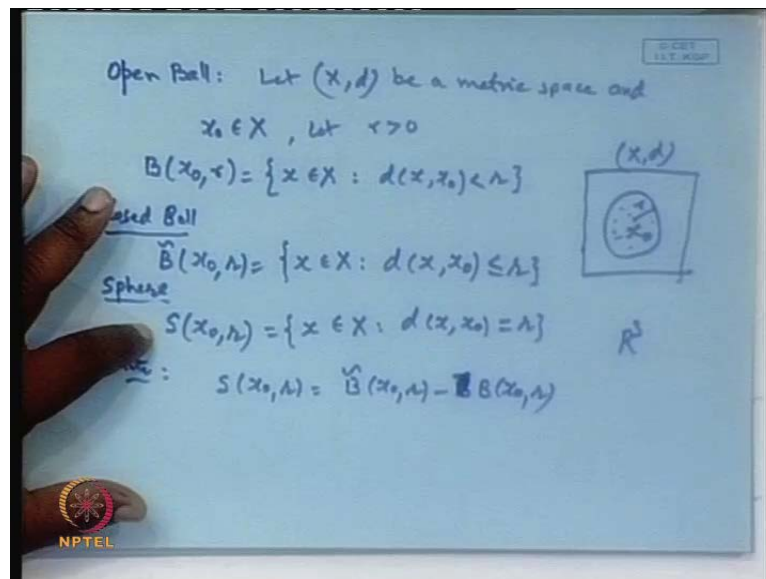 © CET
I.I.T. KGP
Open Ball: Let (X,d) be a metric space and
x₀ ∈ X, Let r>0
B(x₀,r) = {x ∈ X : d(x,x₀) < r}
(X,d)
r
x₀
osed Ball
B̃(x₀,r) = {x ∈ X : d(x,x₀) ≤ r}
Sphere
S(x₀,r) = {x ∈ X : d(x,x₀) = r}
R³
: S(x₀,r) = B̃(x₀,r) - B(x₀,r)
NPTEL